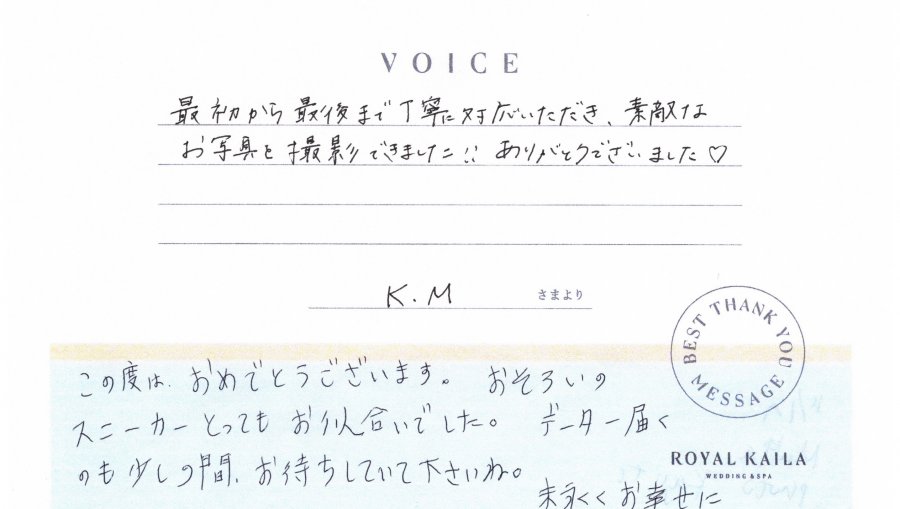 VOICE
最初から最後まで丁寧に対応いただき、素敵な
お写真を撮影できました!! ありがとうございました♡
K.M さまより
BEST THANK YOU MESSAGE
この度は、おめでとうございます。 おそろいの
スニーカーとってもお似合いでした。 データー届く
のも少しの間、お待ちしていて下さいね。
ROYAL KAILA
WEDDING & SPA
末永くお幸せに